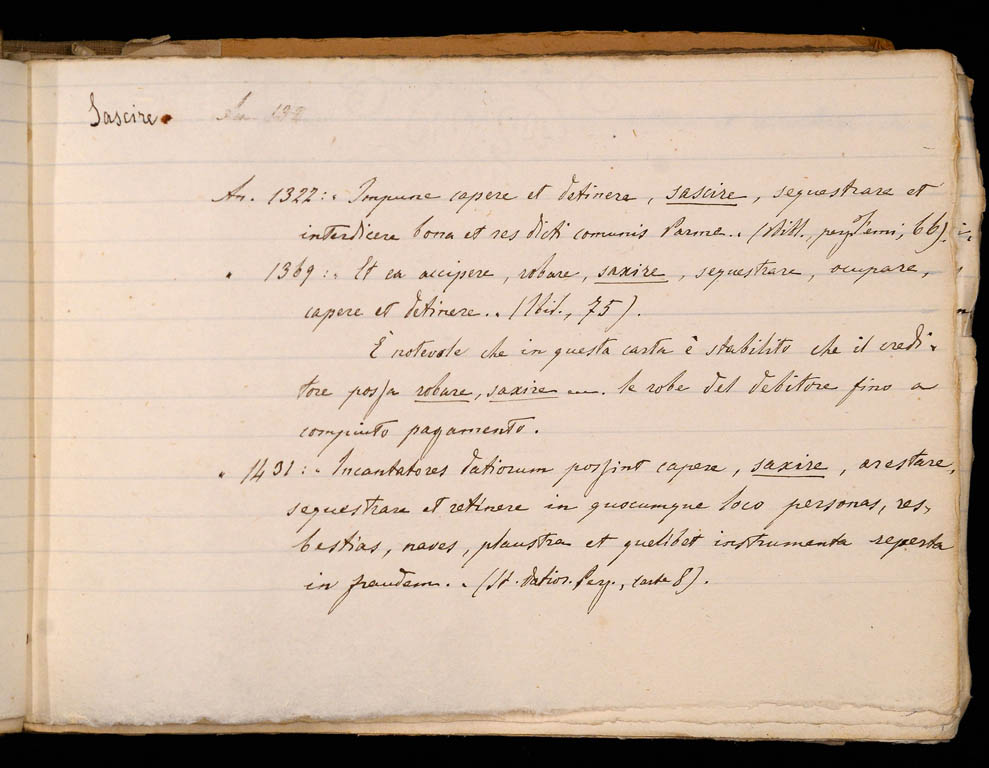 Sascire.
An. 132
An. 1322: „ Impune capere et detinere, sascire, sequestrare et
interdicere bona et res dicti comunis Parme. „ ( 66).
„ 1369: „ Et ea accipere, robare, saxire, sequestrare, ocupare,
capere et detinere. „ (Ibid., 75).
È notevole che in questa carta è stabilito che il credi-
tore possa robare, saxire .... le robe del debitore fino a
compiuto pagamento.
„ 1431: „ Incantatores datiorum possint capere, saxire, arestare,
sequestrare et retinere in quocumque loco personas, res,
bestias, naves, plaustra et quelibet instrumenta reperta
in fraudem. „ (St. datior. carte 8).